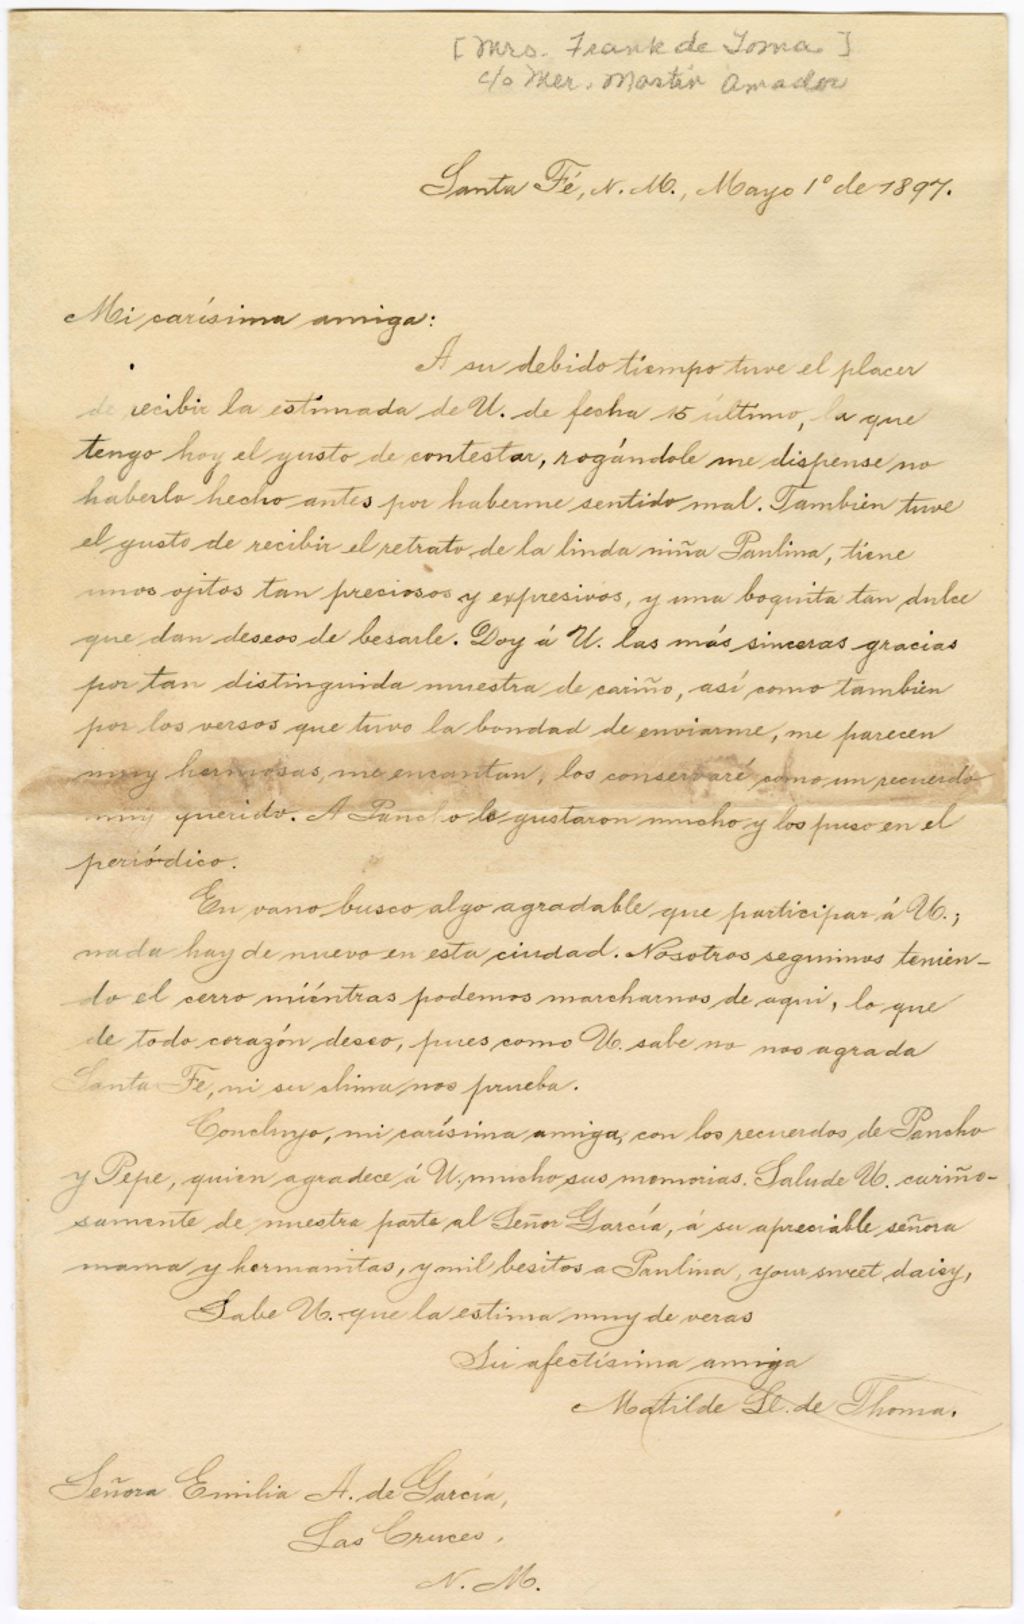 [Mrs. Frank de Toma.]
c/o Mer. Martin Amador
Santa Fé, N. M., Mayo 1º de 1897.
Mi carísima amiga:
A su debido tiempo tuve el placer
de recibir la estimada de U. de fecha 15 último, la que
tengo hoy el gusto de contestar, rogándole me dispense no
haberlo hecho antes por haberme sentido mal. Tambien tuve
el gusto de recibir el retrato de la linda niña Paulina, tiene
unos ojitos tan preciosos y expresivos, y una boquita tan dulce
que dan deseos de besarle. Doy á U. las más sinceras gracias
por tan distinguida muestra de cariño, así como tambien
por los versos que tuvo la bondad de enviarme, me parecen
muy hermosas, me encantan, los conservaré como un recuerdo
muy querido. A Pancho le gustaron mucho y los puso en el
periódico.
En vano busco algo agradable que participar á U.;
nada hay de nuevo en esta ciudad. Nosotros seguimos tenien-
do el cerro miéntras podemos marcharnos de aqui, lo que
de todo corazón deseo, pues como U. sabe no nos agrada
Santa Fe, ni su clima nos prueba.
Concluyo, mi carísima amiga, con los recuerdos de Pancho
y Pepe, quien agradece á U. mucho sus memorias. Salude U. cariño-
samente de nuestra parte al Señor García, á su apreciable señora
mama y hermanitas, y mil besitos a Paulina, your sweet daisy,
Sabe U. que la estima muy de veras
Su afectísima amiga
Matilde Ll. de Thoma.
Señora Emilia A. de García,
Las Cruces,
N. M.